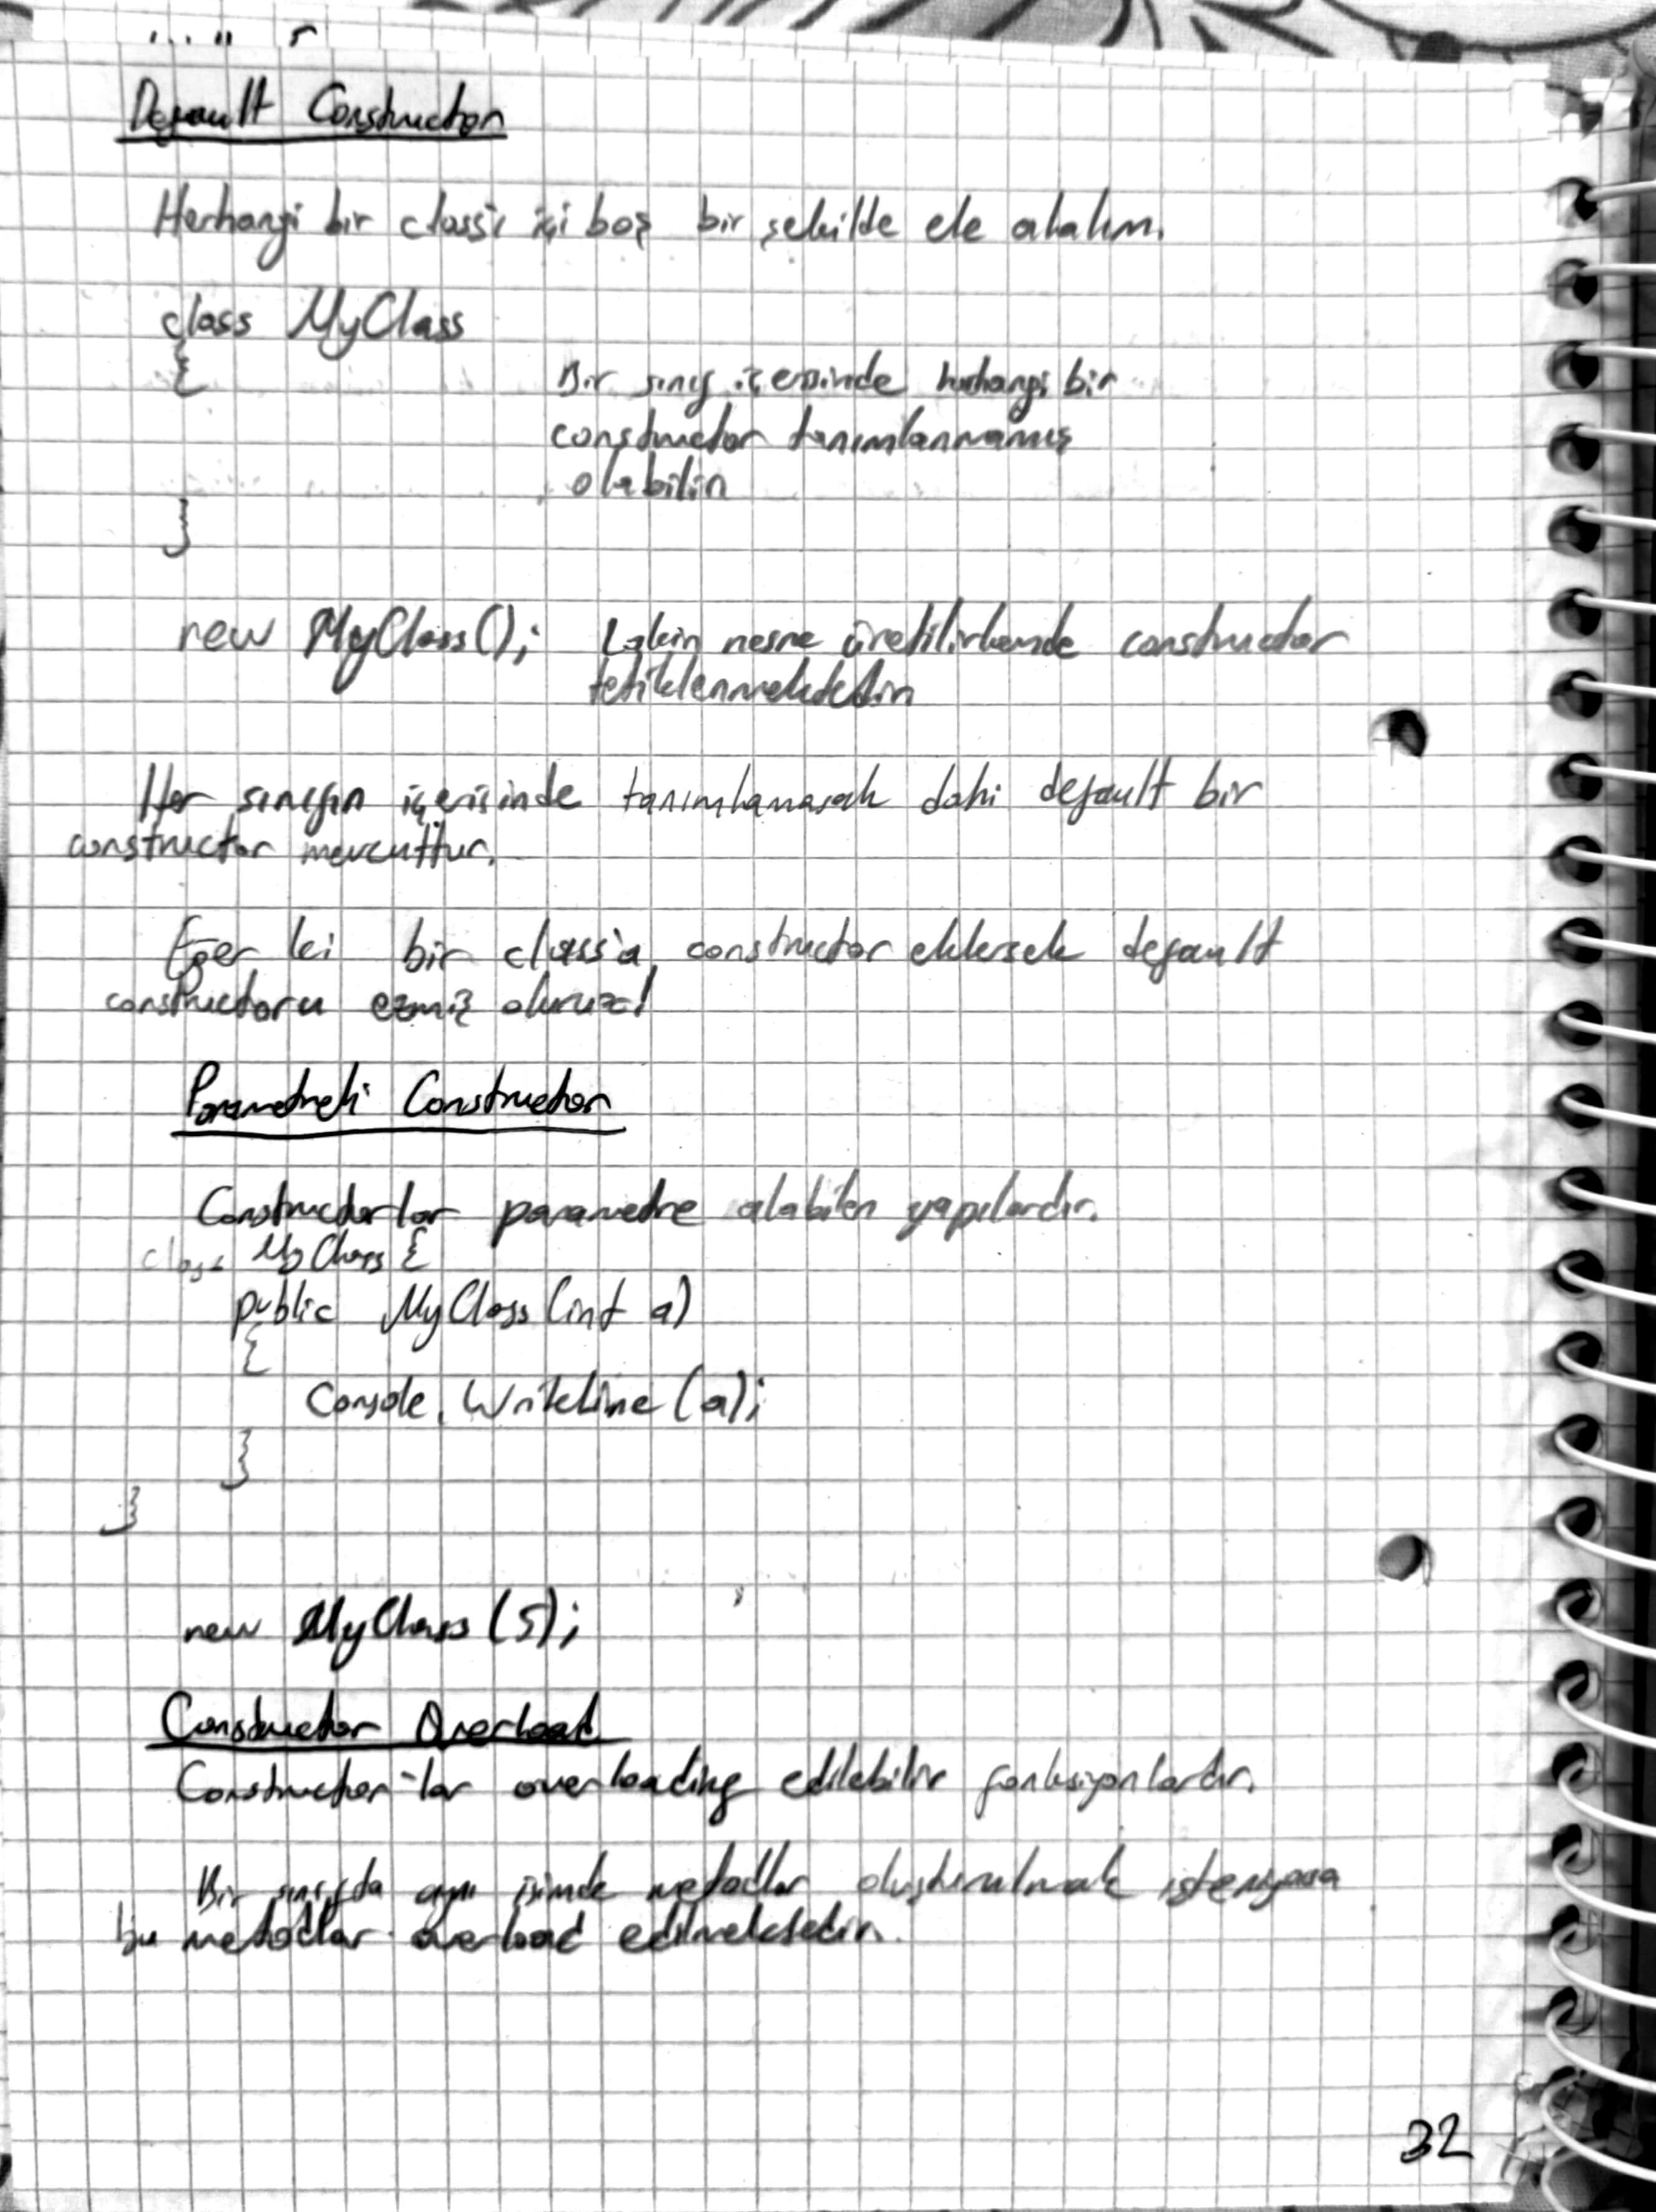 Default Constructor
Herhangi bir class'ı içi boş bir şekilde ele alalım.
class MyClass
{
Bir sınıf içerisinde herhangi bir
constructor tanımlanmamış
olabilir
}
new MyClass(); Lakin nesne üretilirkende constructor
tetiklenmektedir
Her sınıfın içerisinde tanımlamasak dahi default bir
constructor mevcuttur.
Eğer ki bir class'a constructor eklersek default
constructoru ezmiş oluruz!
Parametreli Constructor
Constructorlar parametre alabilen yapılardır.
class MyClass {
public MyClass (int a)
{
Console.WriteLine (a);
}
}
new MyClass (5);
Constructor Overload
Constructor-lar overloading edilebilir fonksiyonlardır.
Bir sınıfta aynı isimde metodlar oluşturulmak isteniyorsa
bu metodlar overload edilmektedir.
32